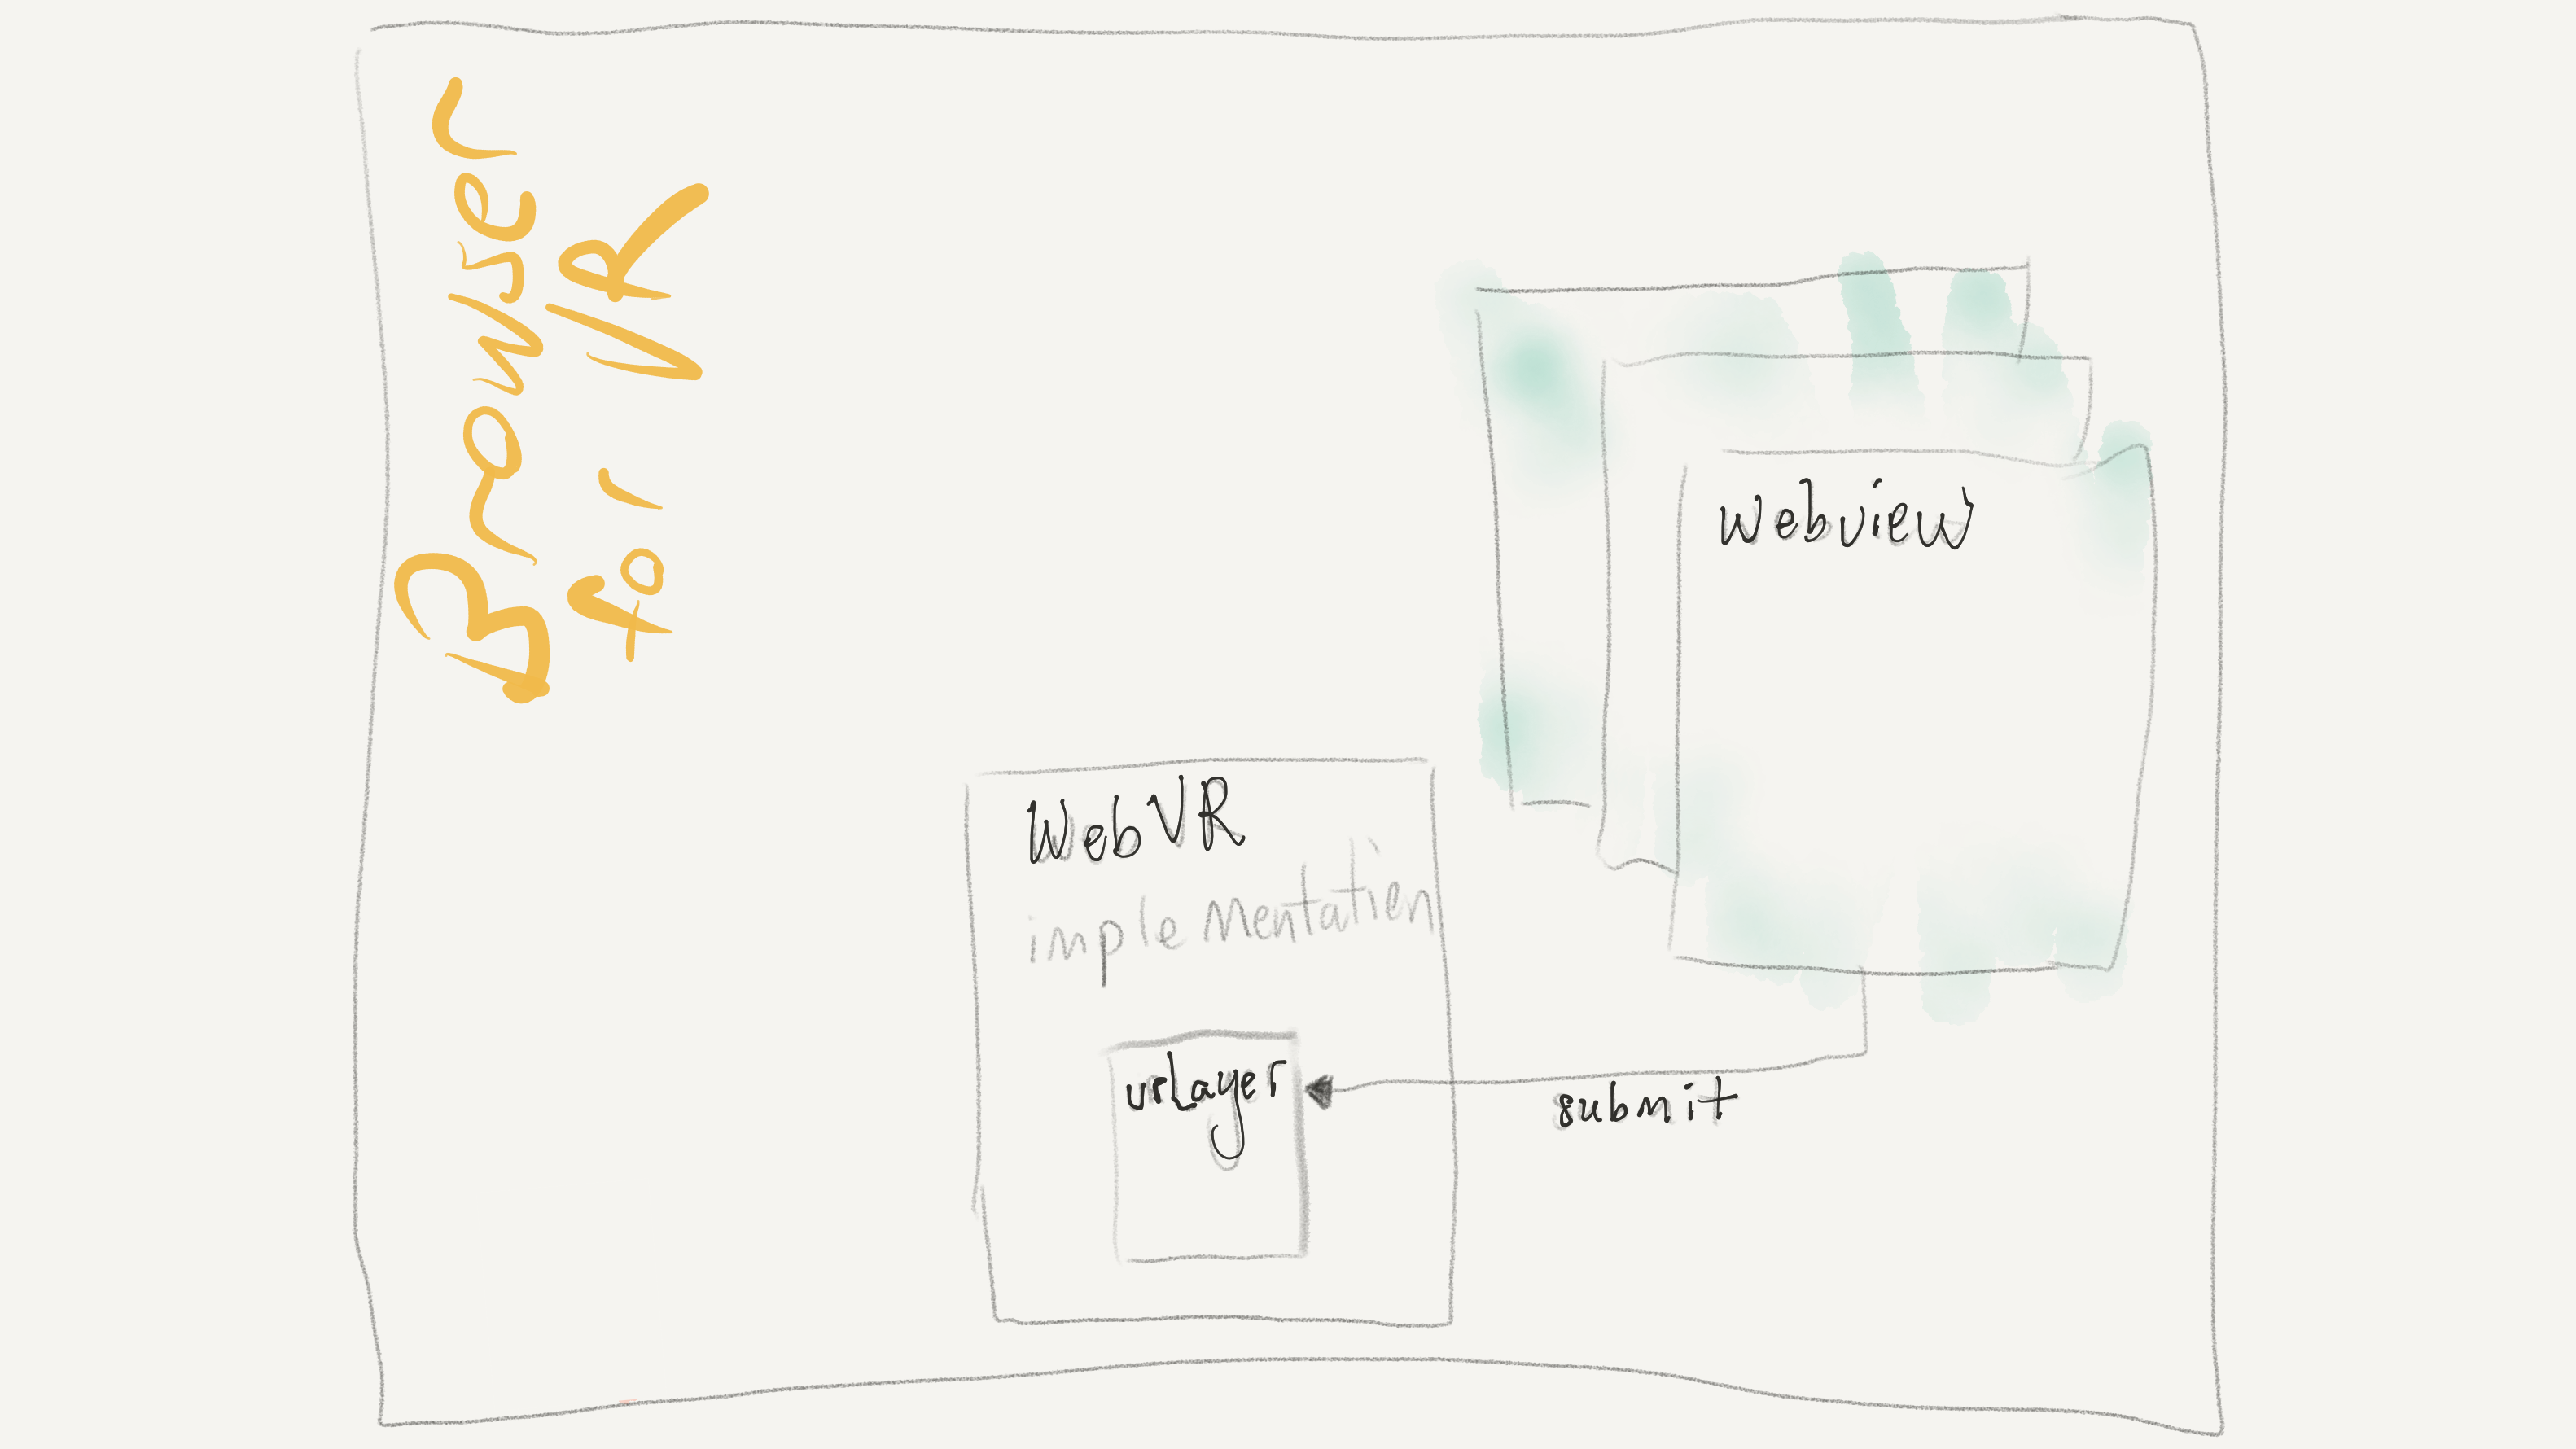 Browser
for VR
Webview
WebVR
implementation
vrLayer
submit